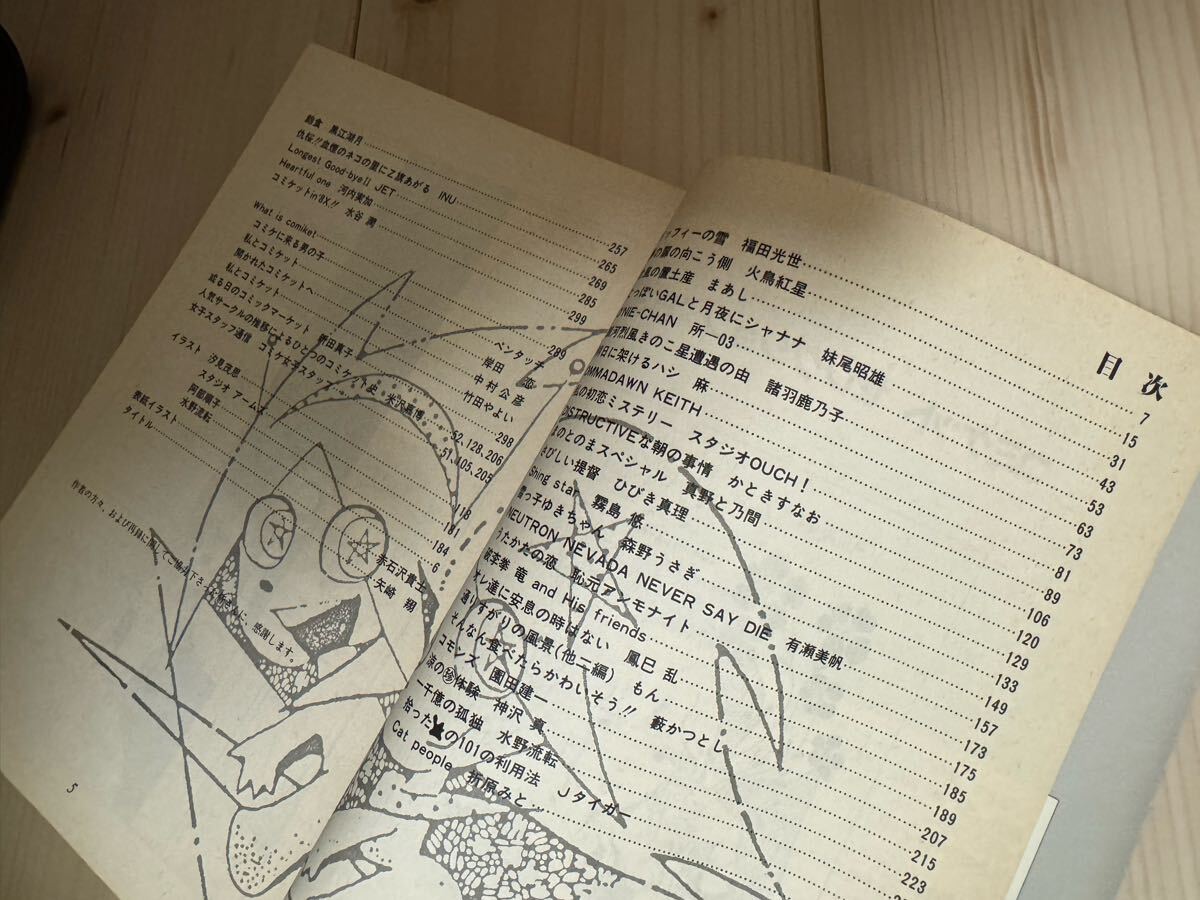 目次
フィーの雪 福田光世 7
の扉の向こう側 火鳥紅星 15
風の置土産 まあし 31
っぽいGALと月夜にシャナナ 妹尾昭雄 43
NIE-CHAN 所一03 53
河烈風きのこ星遭遇の由 諸羽鹿乃子 63
日に架けるハシ 麻 73
MMADAWN KEITH 81
の初恋ミステリー スタジオOUCH! 89
STRUCTIVEな朝の事情 かときすなお 106
のとのまスペシャル 真野と乃間 120
びしい提督 ひびき真理 129
Shing star 霧島 悠 133
っ子ゆきちゃん 森野うさぎ 149
NEUTRON NEVADA NEVER SAY DIE 有瀬美帆 157
うたかたの恋 恥元アンモナイト 173
李拳 竜 and His friends 175
オレ達に安息の時はない 鳳巳 乱 185
通りすがりの風景(他二編) もん 189
そんなん食べたらかわいそう!! 藪かつとし 207
コモンズ 園田建一 215
涙の㊙体験 神沢 真 223
一千億の孤独 水野流転
拾った★の101の利用法 Jタイガー
Cat people 折原みと
蝕 黒江湖月 257
仇桜!!血煙のネコの里にZ旗あがる INU 265
Longest Good-bye!! JET 269
Heartful one 河内実加 285
コミケットin'8X!! 水谷 潤 299
What is comiket 289
コミケに来る男の子 ペンタッチ
私とコミケット 岸田 恋
開かれたコミケットへ 中村公彦
私とコミケット 竹田やよい
或る日のコミックマーケット 新田真子 298
人気サークルの推移によるひとつのコミケット史 米沢嘉博 52、128、206
女子スタッフ通信 コミケ女子スタッフ 51、105、205
イラスト 汐見茂思 18
スタジオ アームズ 181
阿部順子 184
水野流転 6
表紙イラスト 赤石沢貴士
タイトル 矢崎 翔
作者の方々、および再録に関してご協力下さったみなさまに、感謝します。
5